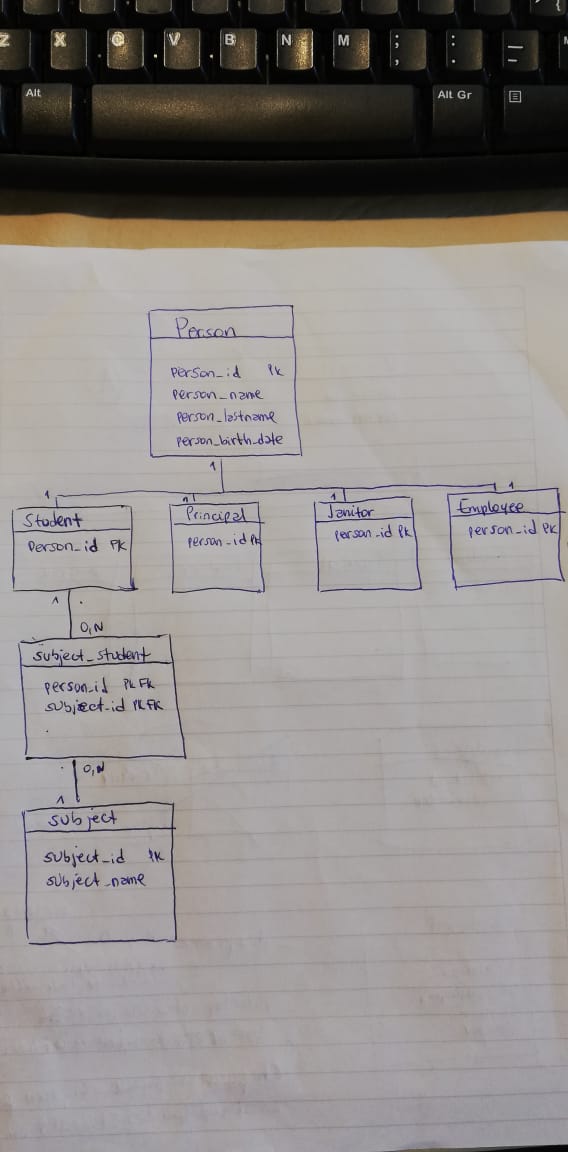 Z X C V B N M ; , : . _ -
Alt Alt Gr
Person
person_id PK
person_name
person_lastname
person_birth_date
1
1 1 1 1
Student Principal Janitor Employee
person_id PK person_id PK person_id PK person_id PK
1
0,N
subject_student
person_id PK FK
subject_id PK FK
0,N
1
subject
subject_id PK
subject_name